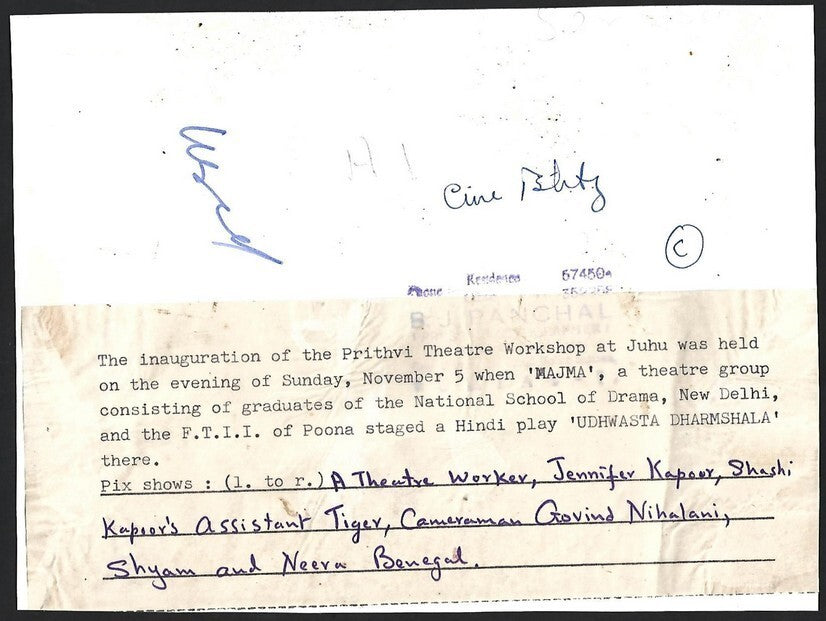 Used
H 1
Cine Blitz
C
Phone Residence 574504
B J PANCHAL
The inauguration of the Prithvi Theatre Workshop at Juhu was held
on the evening of Sunday, November 5 when 'MAJMA', a theatre group
consisting of graduates of the National School of Drama, New Delhi,
and the F.T.I.I. of Poona staged a Hindi play 'UDHWASTA DHARMSHALA'
there.
Pix shows : (l. to r.) A Theatre Worker, Jennifer Kapoor, Shashi
Kapoor's Assistant Tiger, Cameraman Govind Nihalani,
Shyam and Neera Benegal.